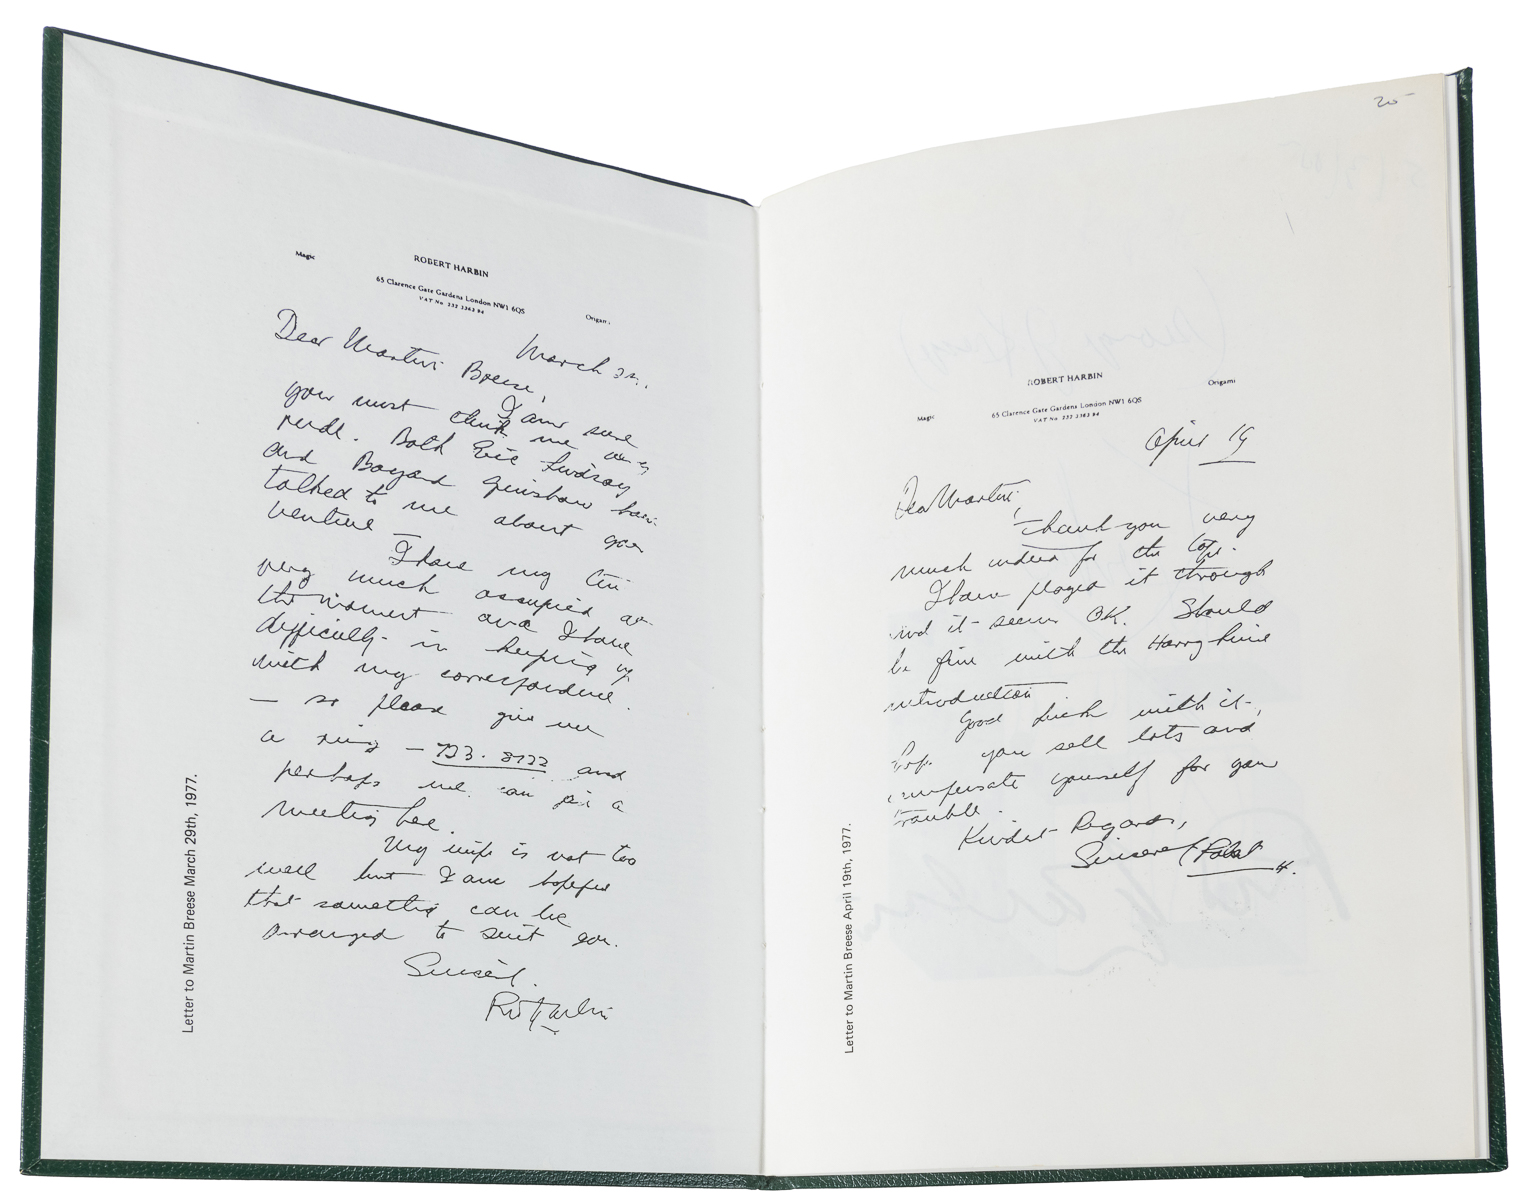 Magic
ROBERT HARBIN
65 Clarence Gate Gardens London NW1 6QS
VAT No 232 2363 94
Origami
March 29.
Dear Martin Breese,
I am sure
you must think me very
rude. Both Eric Lindsay
and Bayard Grimshaw have
talked to me about your
venture —
I have my time
very much occupied at
the moment and I have
difficulty in keeping up
with my correspondence.
— so please give me
a ring — 723. 8722 and
perhaps we can fix a
meeting here.
My wife is not too
well but I am hopeful
that something can be
arranged to suit you.
Sincerely.
Robt Harbin
Letter to Martin Breese March 29th, 1977.
20-
ROBERT HARBIN
Origami
Magic
65 Clarence Gate Gardens London NW1 6QS
VAT No 232 2363 94
April 19
Dear Martin,
Thank you very
much indeed for the tape.
I have played it through
and it seems OK. Should
be fine with the Harry
introduction
Good luck with it,
you sell lots and
compensate yourself for your
trouble.
Kindest Regards,
Sincerely Robt
H.
Letter to Martin Breese April 19th, 1977.